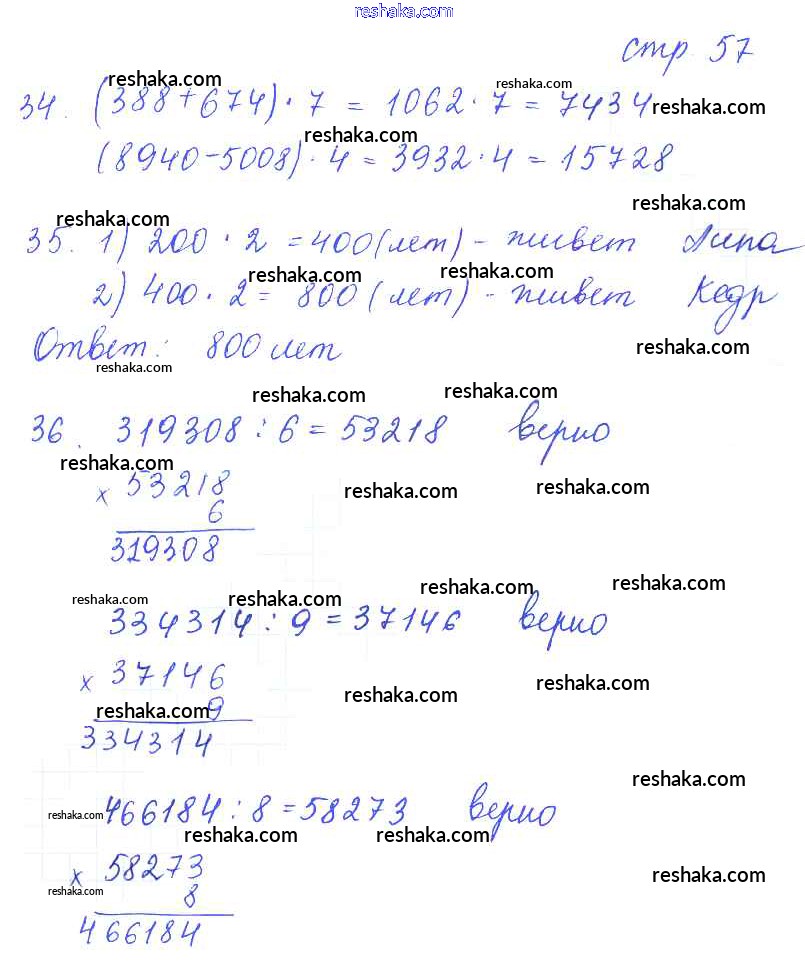 reshaka.com
стр. 57
reshaka.com reshaka.com
34. (388+674)·7 = 1062·7 = 7434 reshaka.com
reshaka.com
(8940-5008)·4 = 3932·4 = 15728
reshaka.com
reshaka.com
35. 1) 200·2 = 400 (лет) - живет Липа
reshaka.com reshaka.com
2) 400·2 = 800 (лет) - живет Кедр
Ответ: 800 лет reshaka.com
reshaka.com
reshaka.com reshaka.com
36. 319308 : 6 = 53218 верно
reshaka.com
x 53218 reshaka.com reshaka.com
6
319308
reshaka.com reshaka.com reshaka.com reshaka.com
334314 : 9 = 37146 верно
x 37146 reshaka.com reshaka.com
reshaka.com 9
334314
reshaka.com
reshaka.com 466184 : 8 = 58273 верно
reshaka.com reshaka.com
x 58273 reshaka.com
reshaka.com 8
466184